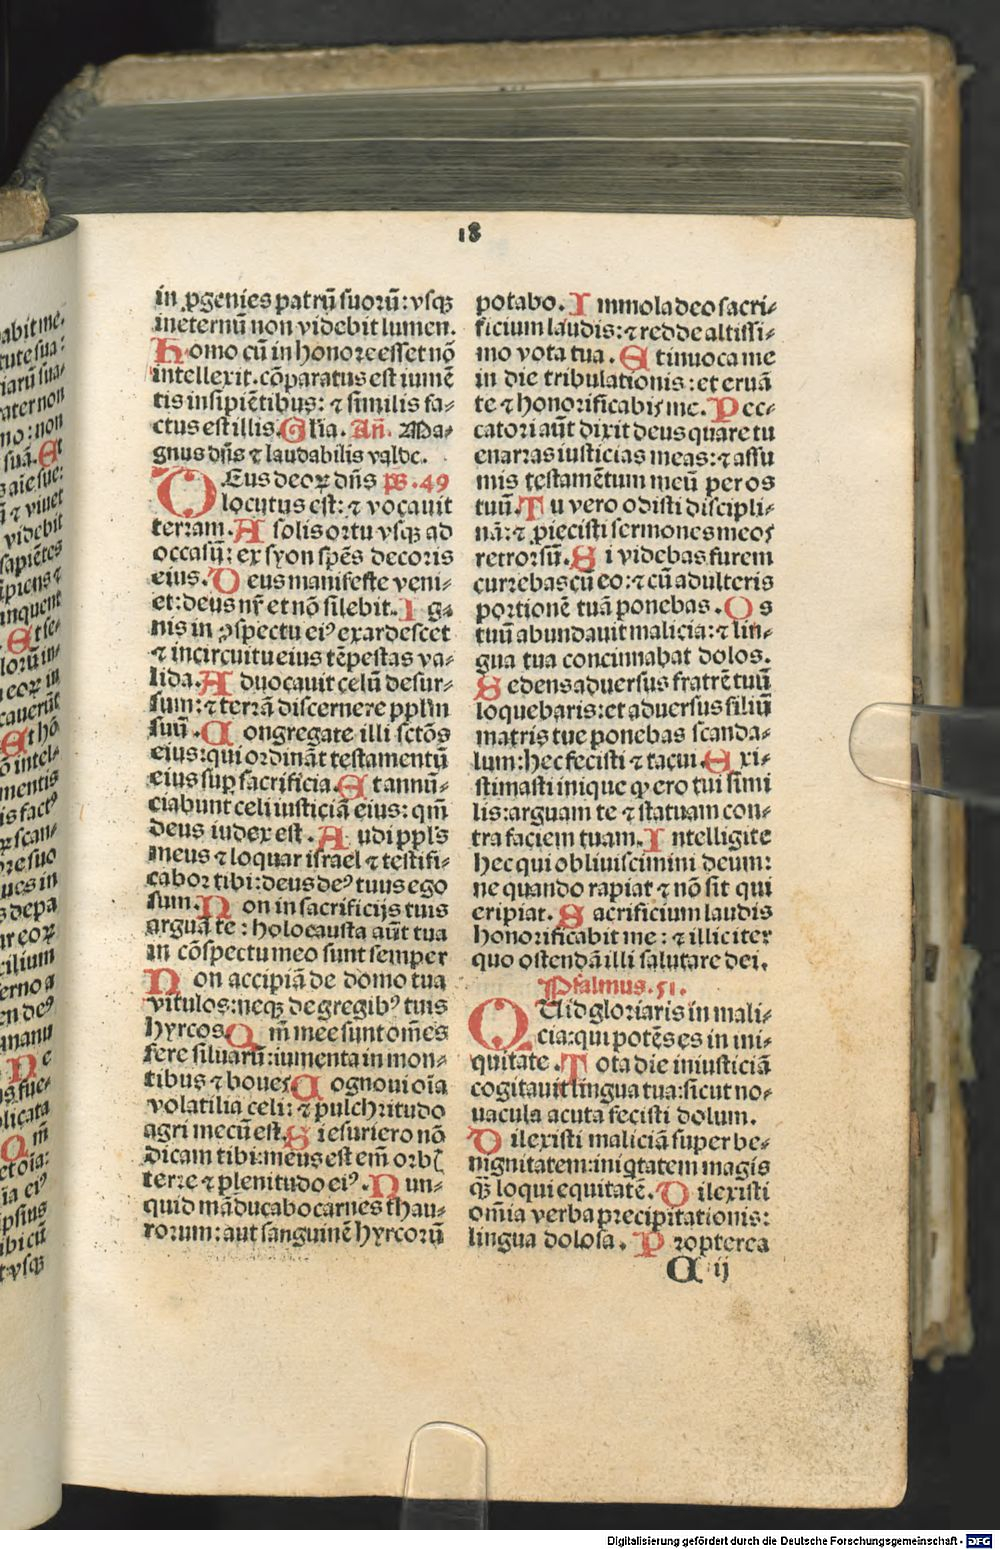 18
in ꝓgenies patrũ suorũ: vsqꝫ
ineternũ non videbit lumen.
Homo cũ in honore esset nõ
intellexit. cõparatus est iumẽ
tis insipiẽtibus: ⁊ similis fa⸗
ctus est illis. Gl̃ia. Añ. Ma⸗
gnus dñs ⁊ laudabilis valde.
DEus deoꝝ dñs ps̃. 49
locutus est: ⁊ vocauit
terram. A solis ortu vsqꝫ ad
occasũ: ex syon spẽs decoris
eius. Deus manifeste veni⸗
et: deus nr̃ et nõ silebit. Ig⸗
nis in ꝯspectu eiꝰ exardescet
⁊ incircuitu eius tẽpestas va⸗
lida. Aduocauit celũ desur⸗
sum: ⁊ terrã discernere pplm̃
suũ. Congregate illi sctõs
eius: qui ordinãt testamentũ
eius suꝑ sacrificia. Et annũ⸗
ciabunt celi iusticiã eius: qm̃
deus iudex est. Audi ppl̃s
meus ⁊ loquar israel ⁊ testifi⸗
cabor tibi: deus deꝰ tuus ego
sum. Non in sacrificijs tuis
arguã te: holocausta aũt tua
in cõspectu meo sunt semper
Non accipiã de domo tua
vitulos: neqꝫ de gregibꝰ tuis
hyrcos. Qm̃ mee sunt om̃es
fere siluarũ: iumenta in mon⸗
tibus ⁊ boues. Cognoui oĩa
volatilia celi: ⁊ pulchritudo
agri mecũ est. Si esuriero nõ
dicam tibi: meus est em̃ orbꝭ
terre ⁊ plenitudo eiꝰ. Nun⸗
quid mãducabo carnes thau⸗
rorum: aut sanguinẽ hyrcorũ
potabo. Immola deo sacri⸗
ficium laudis: ⁊ redde altissi⸗
mo vota tua. Et inuoca me
in die tribulationis: et eruã
te ⁊ honorificabis me. Pec⸗
catori aũt dixit deus quare tu
enarras iusticias meas: ⁊ assu
mis testamẽtum meũ per os
tuũ. Tu vero odisti discipli⸗
nã: ⁊ piecisti sermones meos
retrorsũ. Si videbas furem
currebas cũ eo: ⁊ cũ adulteris
portionẽ tuã ponebas. Os
tuũ abundauit malicia: ⁊ lin⸗
gua tua concinnabat dolos.
Sedens aduersus fratrẽ tuũ
loquebaris: et aduersus filiũ
matris tue ponebas scanda⸗
lum: hec fecisti ⁊ tacui. Exi⸗
stimasti inique ꝙ ero tui simi
lis: arguam te ⁊ statuam con⸗
tra faciem tuam. Intelligite
hec qui obliuiscimini deum:
ne quando rapiat ⁊ nõ sit qui
eripiat. Sacrificium laudis
honorificabit me: ⁊ illic iter
quo ostendã illi salutare dei.
Psalmus. 51.
QUid gloriaris in mali⸗
cia: qui potẽs es in ini⸗
quitate. Tota die iniusticiã
cogitauit lingua tua: sicut no⸗
uacula acuta fecisti dolum.
Dilexisti maliciã super be⸗
nignitatem: iniqtatem magis
qꝫ̃ loqui equitatẽ. Dilexisti
om̃ia verba precipitationis:
lingua dolosa. Propterea
C ij
Digitalisierung gefördert durch die Deutsche Forschungsgemeinschaft - DFG